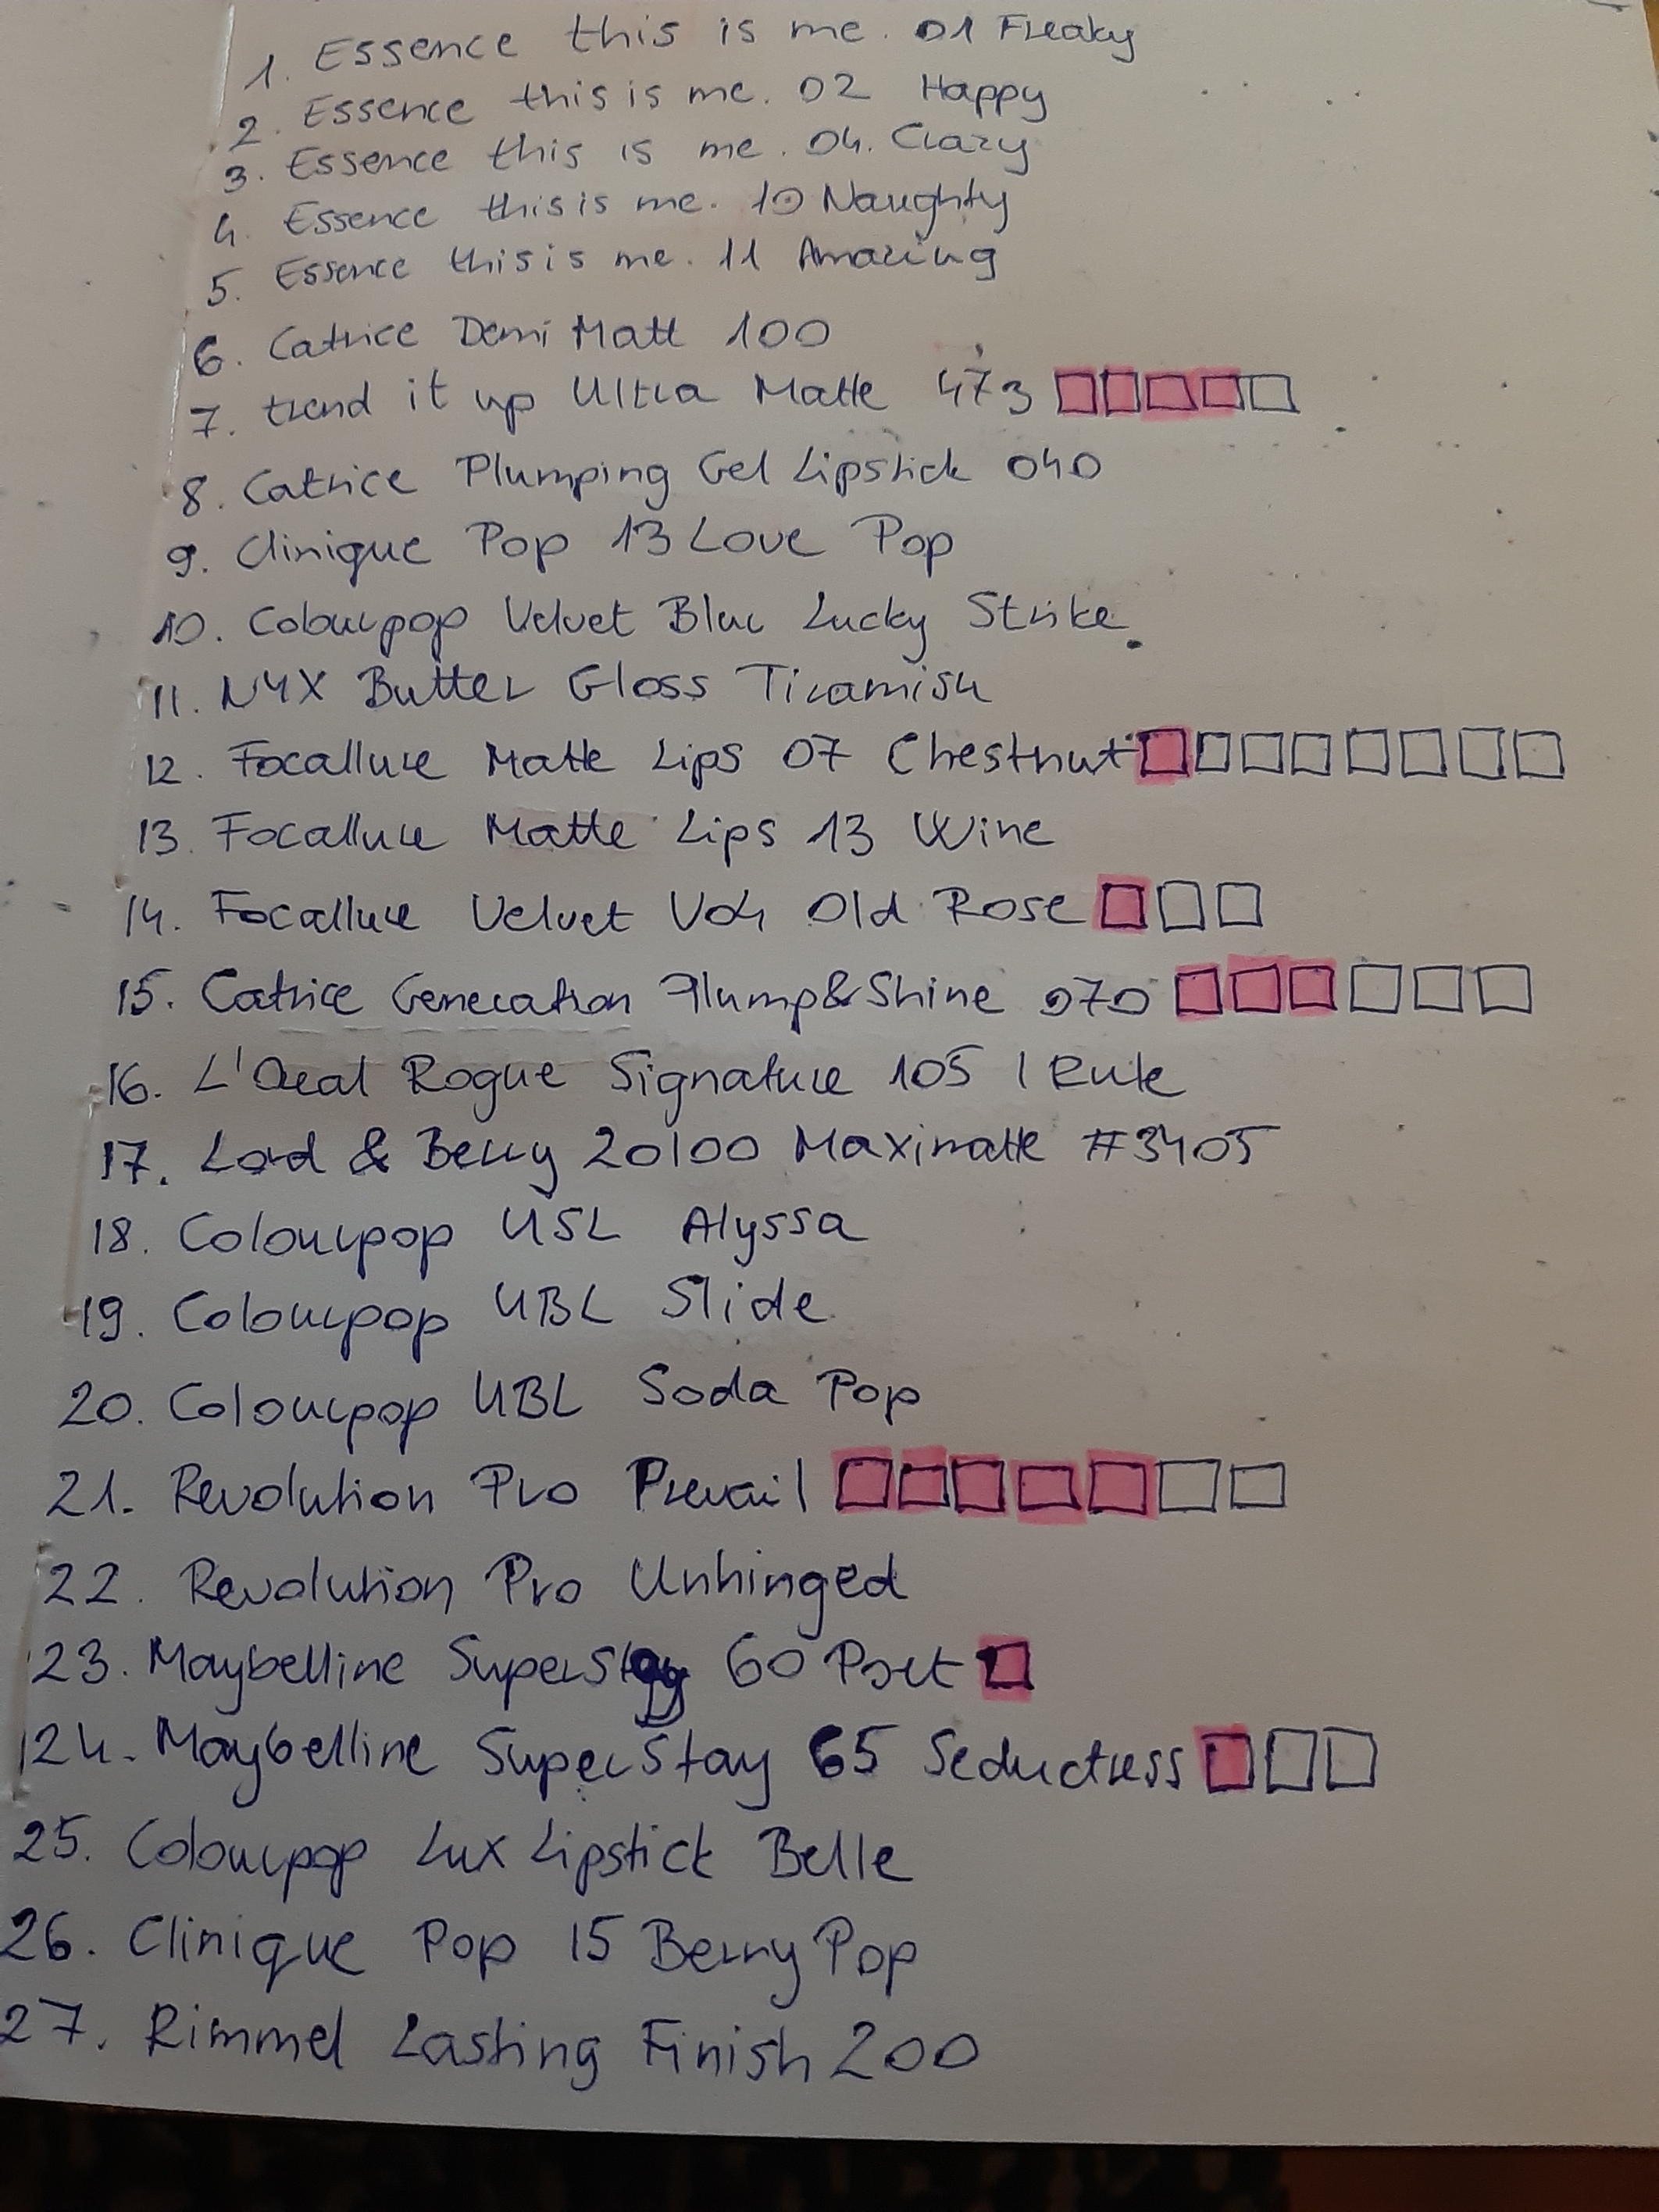 1. Essence this is me. 01 Freaky
2. Essence this is me. 02 Happy
3. Essence this is me. 04. Crazy
4. Essence this is me. 10 Naughty
5. Essence this is me. 11 Amazing
6. Catrice Demi Matt 100
7. trend it up Ultra Matte 473
8. Catrice Plumping Gel Lipstick 040
9. Clinique Pop 13 Love Pop
10. Colourpop Velvet Blur Lucky Strike.
11. NYX Butter Gloss Tiramisu
12. Focallure Matte Lips 07 Chestnut
13. Focallure Matte Lips 13 Wine
14. Focallure Velvet V04 Old Rose
15. Catrice Generation Plump&Shine 070
16. L'Oreal Rogue Signature 105 I Rule
17. Lord & Berry 20100 Maximatte #3405
18. Colourpop USL Alyssa
19. Colourpop UBL Slide
20. Colourpop UBL Soda Pop
21. Revolution Pro Prevail
22. Revolution Pro Unhinged
23. Maybelline Superstay 60 Poet
24. Maybelline SuperStay 65 Seductress
25. Colourpop Lux Lipstick Belle
26. Clinique Pop 15 Berry Pop
27. Rimmel Lasting Finish 200